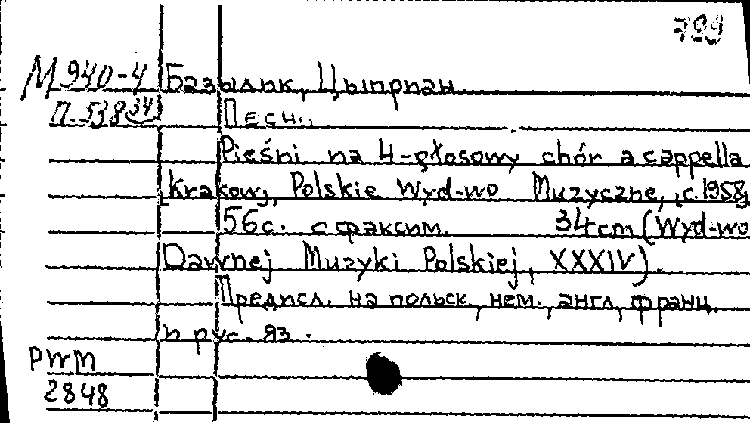 799
М940-4 Базылик, Цыприан
П.538 34) Песн.
Pieśni na 4-głosowy chór a cappella
Krakow, Polskie Wyd-wo Muzyczne, c.1958,
56с. с факсим. 34cm (Wyd-wo
Dawnej Muzyki Polskiej, XXXIV).
Предисл. на польск, нем., англ, франц.
и рус. яз.
PWM
2848